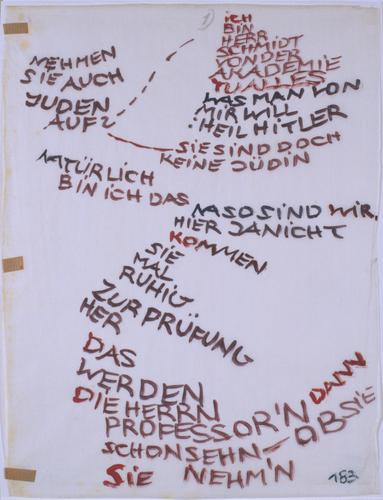 1)
ICH
BIN
HERR
SCHMIDT
VON DER
AKADEMIE
TU ALLES
WAS MAN VON
MIR WILL
HEIL HITLER
NEHMEN
SIE AUCH
JUDEN
AUF?
SIE SIND DOCH
KEINE JÜDIN
NATÜRLICH
BIN ICH DAS
NA SO SIND WIR
HIER JA NICHT
KOMMEN
SIE
MAL
RUHIG
ZUR PRÜFUNG
HER
DAS
WERDEN
DIE HERRN
PROFESSOR'N DANN
SCHON SEHN – OB SIE
SIE NEHM'N
183